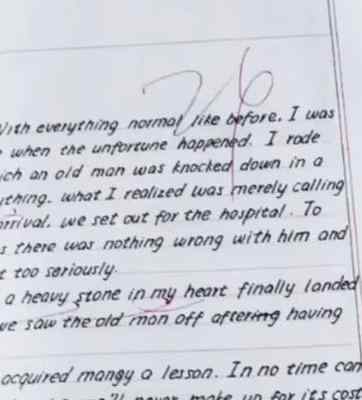 26
With everything normal like before. I was
when the unfortune happened. I rode
ich an old man was knocked down in a
ything. what I realized was merely calling
arrival, we set out for the hospital. To
s there was nothing wrong with him and
t too seriously.
a heavy stone in my heart finally landed
we saw the old man off aftering having
acquired mangy a lesson. In no time can
never make up for its cost